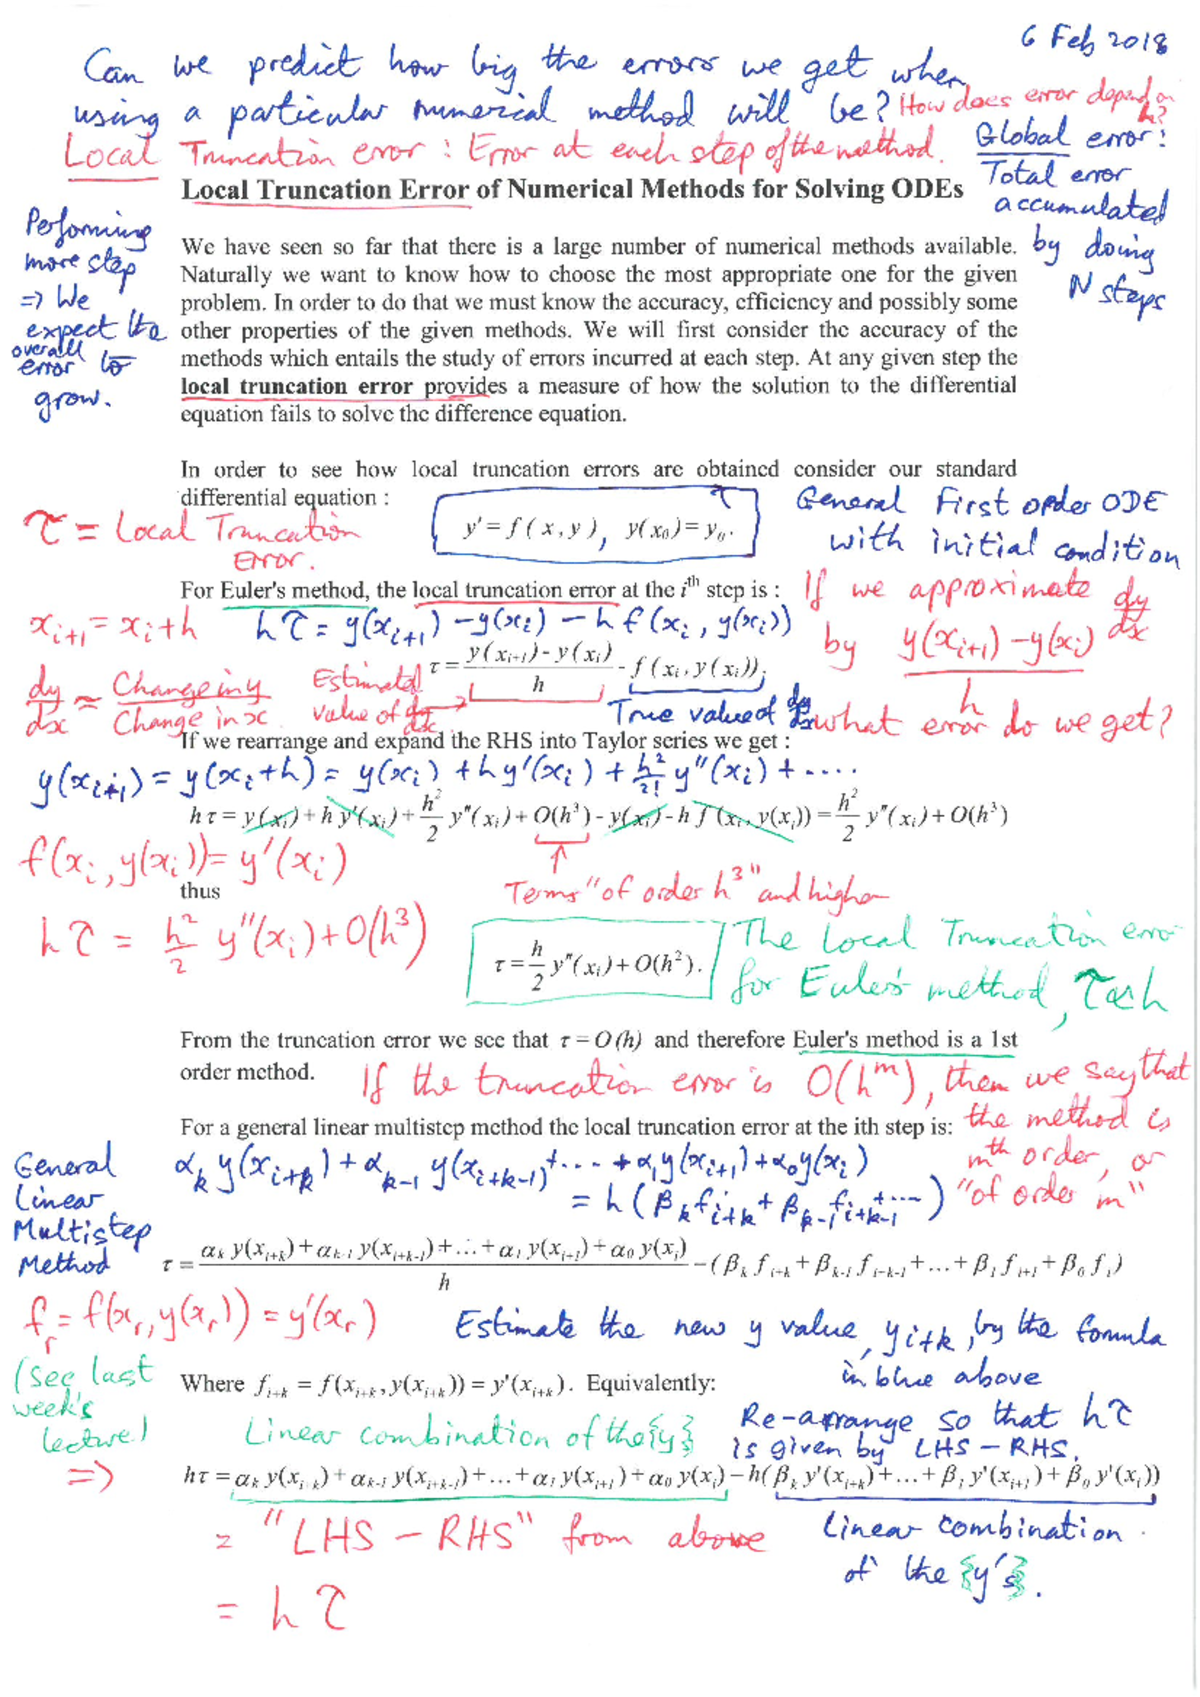 6 Feb 2018
Can we predict how big the errors we get when
using a particular numerical method will be? How does error depend on h?
Local Truncation error : Error at each step of the method.
Global error:
Total error
accumulated
by doing
N steps
Local Truncation Error of Numerical Methods for Solving ODEs
Performing
more step
=> We
expect the
overall
error to
grow.
We have seen so far that there is a large number of numerical methods available.
Naturally we want to know how to choose the most appropriate one for the given
problem. In order to do that we must know the accuracy, efficiency and possibly some
other properties of the given methods. We will first consider the accuracy of the
methods which entails the study of errors incurred at each step. At any given step the
local truncation error provides a measure of how the solution to the differential
equation fails to solve the difference equation.
In order to see how local truncation errors are obtained consider our standard
differential equation :
y' = f ( x, y ), y(x₀) = y₀.
General First order ODE
with initial condition
τ = Local Truncation
Error.
For Euler's method, the local truncation error at the iᵗʰ step is :
If we approximate dy/dx
by (y(xᵢ₊₁) - y(xᵢ))/h
what error do we get?
xᵢ₊₁ = xᵢ + h
hτ = y(xᵢ₊₁) - y(xᵢ) - h f(xᵢ, y(xᵢ))
τ = (y(xᵢ₊₁) - y(xᵢ))/h - f(xᵢ, y(xᵢ)),
dy/dx ≈ Change in y / Change in x
Estimated
value of dy/dx
True value of dy/dx
If we rearrange and expand the RHS into Taylor series we get :
y(xᵢ₊₁) = y(xᵢ+h) = y(xᵢ) + hy'(xᵢ) + h²/2! y''(xᵢ) + ....
hτ = y(xᵢ) + h y'(xᵢ) + h²/2 y''(xᵢ) + O(h³) - y(xᵢ) - h f(xᵢ, y(xᵢ)) = h²/2 y''(xᵢ) + O(h³)
f(xᵢ, y(xᵢ)) = y'(xᵢ)
thus
Terms "of order h³" and higher
hτ = h²/2 y''(xᵢ) + O(h³)
τ = h/2 y''(xᵢ) + O(h²).
The Local Truncation error
for Euler's method, τ ∝ h
From the truncation error we see that τ = O(h) and therefore Euler's method is a 1st
order method.
If the truncation error is O(hᵐ), then we say that
the method is
mᵗʰ order, or
"of order m"
For a general linear multistep method the local truncation error at the ith step is:
General
Linear
Multistep
Method
αₖ y(xᵢ₊ₖ) + αₖ₋₁ y(xᵢ₊ₖ₋₁) + ... + α₁y(xᵢ₊₁) + α₀y(xᵢ)
= h (βₖ fᵢ₊ₖ + βₖ₋₁ fᵢ₊ₖ₋₁ + ...)
τ = (αₖ y(xᵢ₊ₖ) + αₖ₋₁ y(xᵢ₊ₖ₋₁) + ... + α₁ y(xᵢ₊₁) + α₀ y(xᵢ))/h - (βₖ fᵢ₊ₖ + βₖ₋₁ fᵢ₊ₖ₋₁ + ... + β₁ fᵢ₊₁ + β₀ fᵢ)
fᵣ = f(xᵣ, y(xᵣ)) = y'(xᵣ)
Estimate the new y value, yᵢ₊ₖ, by the formula
in blue above
(See last
week's
lecture)
=>
Where fᵢ₊ₖ = f(xᵢ₊ₖ, y(xᵢ₊ₖ)) = y'(xᵢ₊ₖ). Equivalently:
Linear combination of the {y}
Re-arrange so that hτ
is given by LHS - RHS.
hτ = αₖ y(xᵢ₊ₖ) + αₖ₋₁ y(xᵢ₊ₖ₋₁) + ... + α₁ y(xᵢ₊₁) + α₀ y(xᵢ) - h(βₖ y'(xᵢ₊ₖ) + ... + β₁ y'(xᵢ₊₁) + β₀ y'(xᵢ))
= "LHS - RHS" from above
Linear combination
of the {y's}.
= hτ